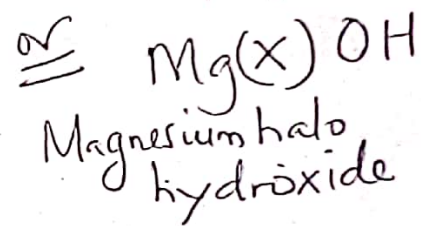 or Mg(X) OH
Magnesium halo
hydroxide